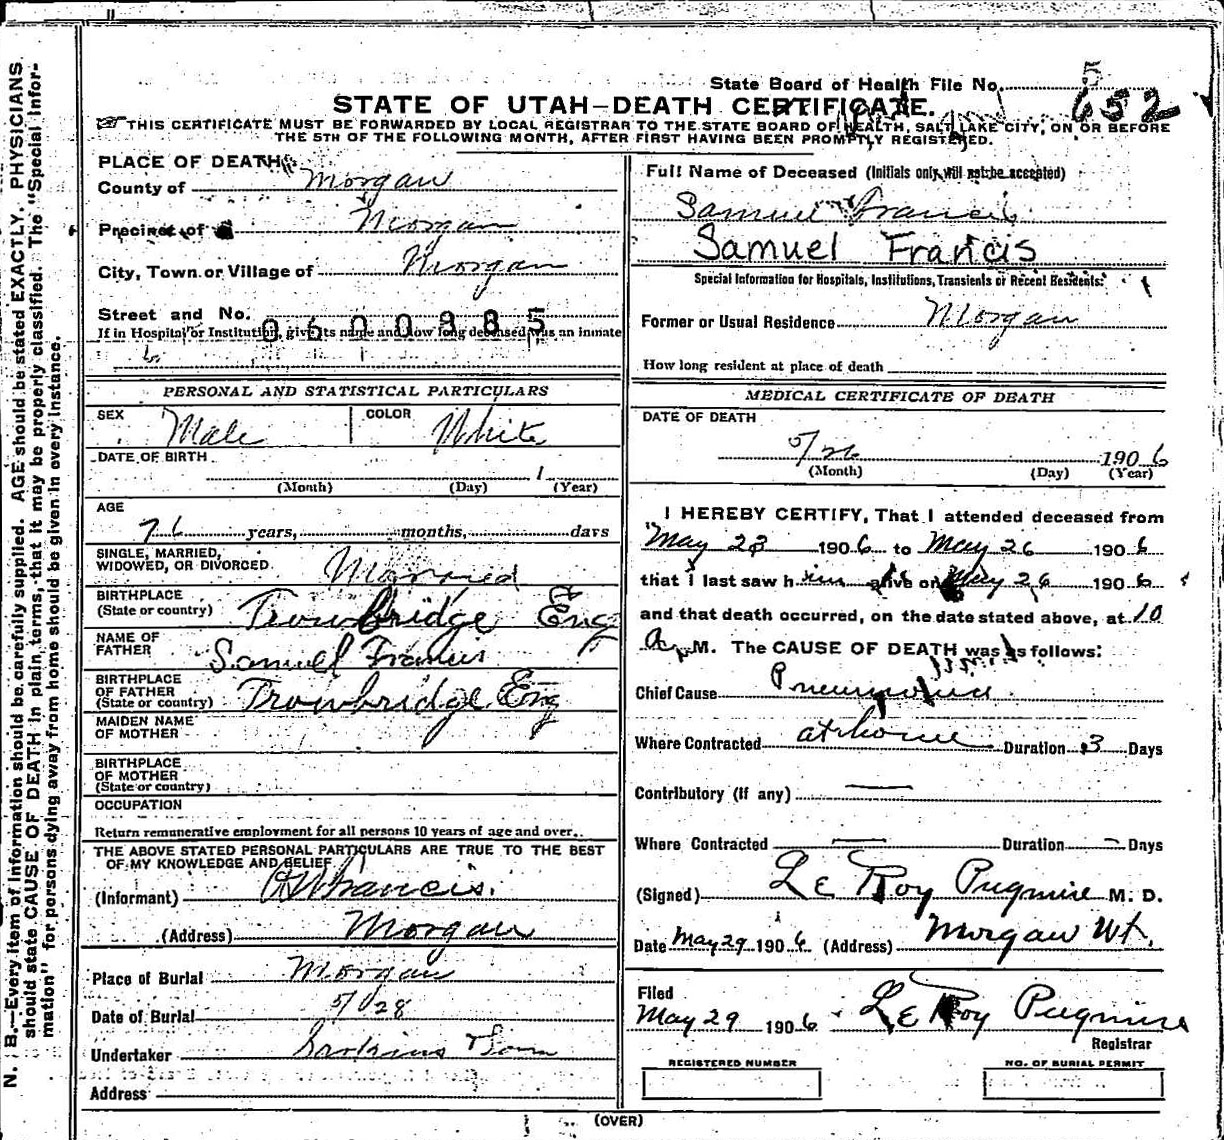 State Board of Health File No. 652
5
STATE OF UTAH—DEATH CERTIFICATE.
THIS CERTIFICATE MUST BE FORWARDED BY LOCAL REGISTRAR TO THE STATE BOARD OF HEALTH, SALT LAKE CITY, ON OR BEFORE
THE 5TH OF THE FOLLOWING MONTH, AFTER FIRST HAVING BEEN PROMPTLY REGISTERED.
PLACE OF DEATH
County of Morgan
Precinct of Morgan
City, Town or Village of Morgan
Street and No.
0600985
If in Hospital or Institution, give its name and how long deceased was an inmate
PERSONAL AND STATISTICAL PARTICULARS
SEX Male COLOR White
DATE OF BIRTH
1
(Month) (Day) (Year)
AGE
76 years, months, days
SINGLE, MARRIED,
WIDOWED, OR DIVORCED. Married
BIRTHPLACE
(State or country) Trowbridge Eng
NAME OF
FATHER Samuel Francis
BIRTHPLACE
OF FATHER
(State or country) Trowbridge Eng
MAIDEN NAME
OF MOTHER
BIRTHPLACE
OF MOTHER
(State or country)
OCCUPATION
Return remunerative employment for all persons 10 years of age and over.
THE ABOVE STATED PERSONAL PARTICULARS ARE TRUE TO THE BEST
OF MY KNOWLEDGE AND BELIEF
(Informant) Francis.
(Address) Morgan
Place of Burial Morgan
Date of Burial 5/28
Undertaker
Address
Full Name of Deceased (Initials only will not be accepted)
Samuel Francis
Samuel Francis
Special Information for Hospitals, Institutions, Transients or Recent Residents:
Former or Usual Residence Morgan
How long resident at place of death
MEDICAL CERTIFICATE OF DEATH
DATE OF DEATH
5/26 1906
(Month) (Day) (Year)
I HEREBY CERTIFY, That I attended deceased from
May 23 1906 to May 26 1906
that I last saw him alive on May 26 1906
and that death occurred, on the date stated above, at 10
A. M. The CAUSE OF DEATH was as follows:
Chief Cause Pneumonia
Where Contracted at home Duration 3 Days
Contributory (if any) —
Where Contracted — Duration — Days
(Signed) Le Roy Pugmire M. D.
Date May 29 1906 (Address) Morgan Ut.
Filed
May 29 1906 Le Roy Pugmire
Registrar
REGISTERED NUMBER
NO. OF BURIAL PERMIT
(OVER)
N. B.—Every item of information should be carefully supplied. AGE should be stated EXACTLY. PHYSICIANS
should state CAUSE OF DEATH in plain terms, that it may be properly classified. The "Special Infor-
mation" for persons dying away from home should be given in every instance.